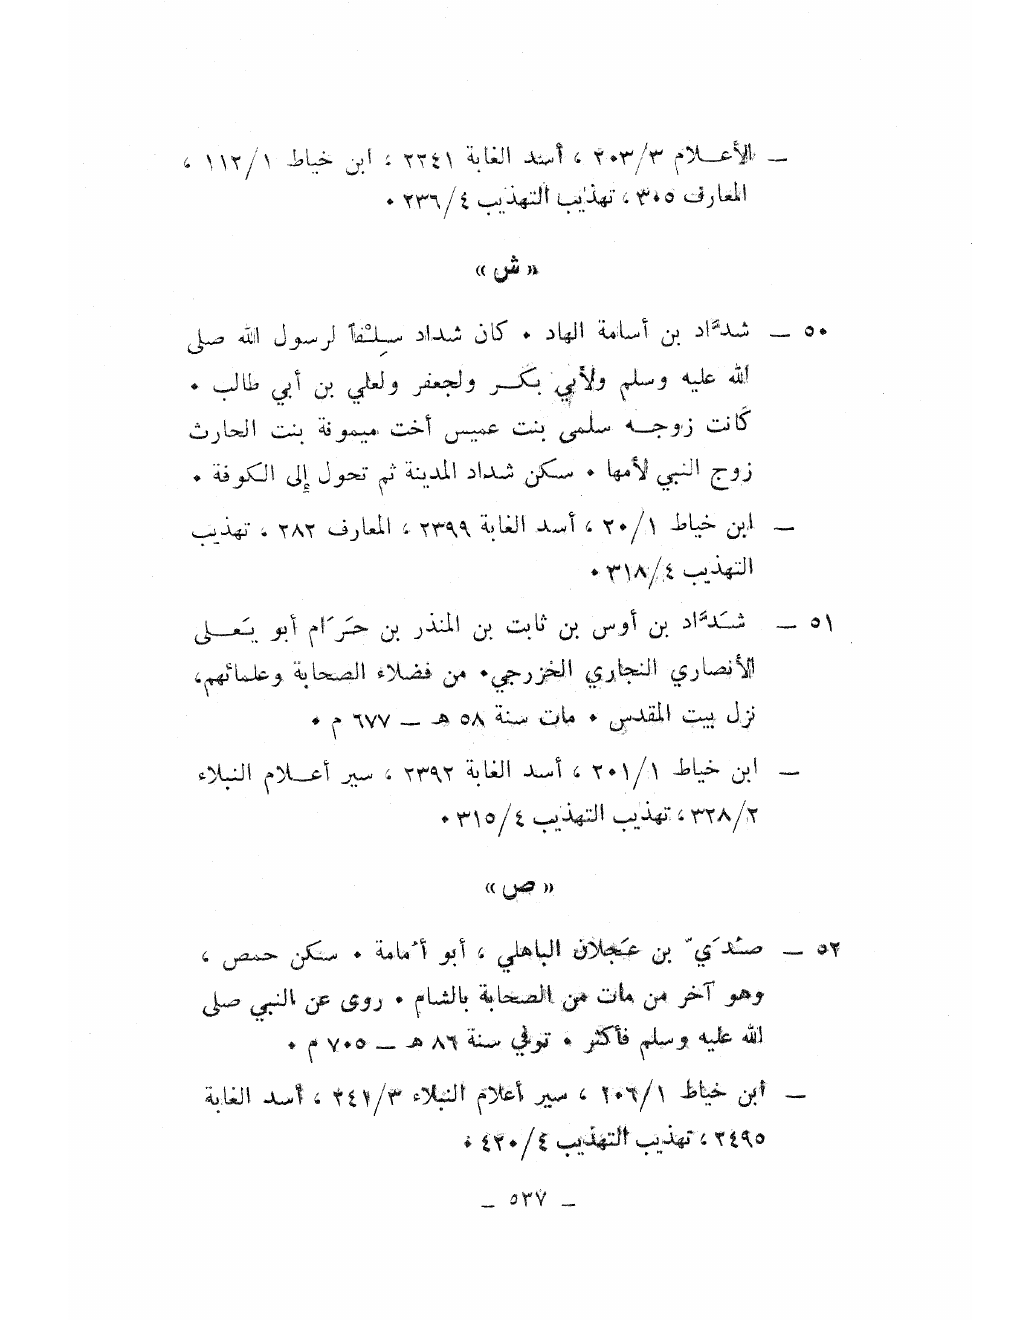 ــ الأعـلام ٢٠٣/٣ ، أسد الغابة ٢٢٤١ ، ابن خياط ١١٢/١ ،
المعارف ٣٠٥ ، تهذيب التهذيب ٢٣٦/٤ ٠
« ش »
٥٠ ــ شدَّاد بن أسامة الهاد ٠ كان شداد سِلْفاً لرسول الله صلى
الله عليه وسلم ولأبي بكـر ولجعفر ولعلي بن أبي طالب ٠
كانت زوجـه سلمى بنت عميس أخت ميمونة بنت الحارث
زوج النبي لأمها ٠ سكن شداد المدينة ثم تحول إلى الكوفة ٠
ــ ابن خياط ٢٠/١ ، أسد الغابة ٢٣٩٩ ، المعارف ٢٨٢ ، تهذيب
التهذيب ٣١٨/٤ ٠
٥١ ــ شَدَّاد بن أوس بن ثابت بن المنذر بن حَرَام أبو يَعـلى
الأنصاري النجاري الخزرجي٠ من فضلاء الصحابة وعلمائهم،
نزل بيت المقدس ٠ مات سنة ٥٨ هـ ــ ٦٧٧ م ٠
ــ ابن خياط ٢٠١/١ ، أسد الغابة ٢٣٩٢ ، سير أعـلام النبلاء
٣٢٨/٢ ، تهذيب التهذيب ٣١٥/٤ ٠
« ص »
٥٢ ــ صُدَيّ بن عَجلان الباهلي ، أبو أُمامة ٠ سكن حمص ،
وهو آخر من مات من الصحابة بالشام ٠ روى عن النبي صلى
الله عليه وسلم فأكثر ٠ توفي سنة ٨٦ هـ ــ ٧٠٥ م ٠
ــ ابن خياط ٢٠٦/١ ، سير أعلام النبلاء ٢٤١/٣ ، أسد الغابة
٢٤٩٥ ، تهذيب التهذيب ٤٢٠/٤ ٠
ــ ٥٣٧ ــ